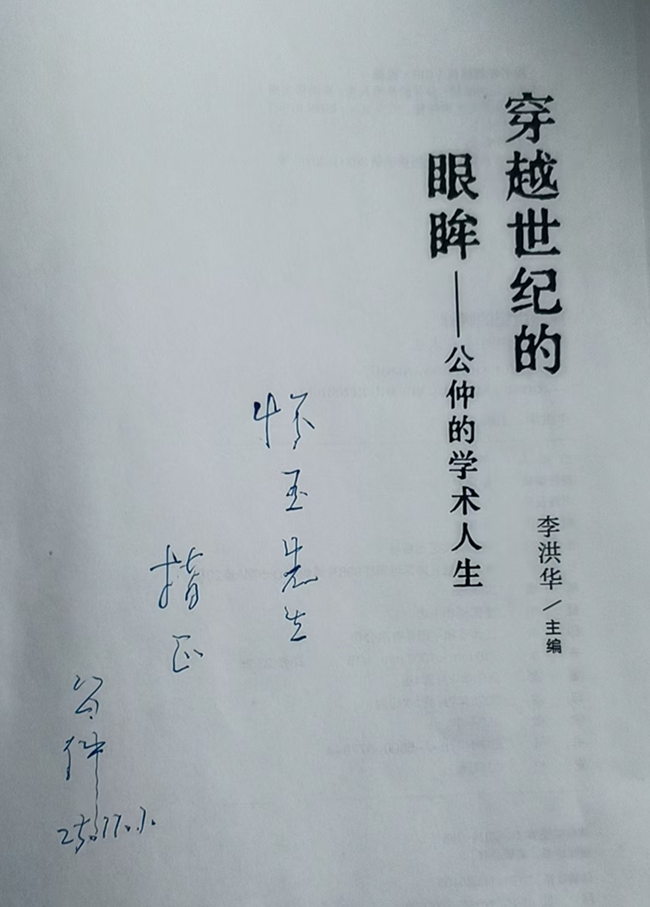 穿越世纪的
眼眸——公仲的学术人生
李洪华／主编
怀玉先生
指正
公仲
25.11.1.